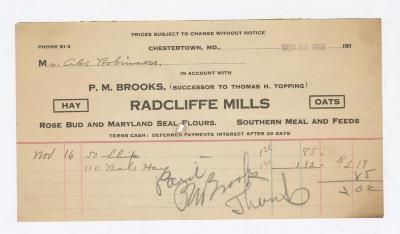 PRICES SUBJECT TO CHANGE WITHOUT NOTICE
PHONE 81-3
CHESTERTOWN, MD., NOV 191
Mr. Robinson.
IN ACCOUNT WITH
P. M. BROOKS, (SUCCESSOR TO THOMAS H. TOPPING)
HAY RADCLIFFE MILLS OATS
ROSE BUD AND MARYLAND SEAL FLOURS. SOUTHERN MEAL AND FEEDS
TERMS CASH: DEFERRED PAYMENTS INTEREST AFTER 30 DAYS
Nov 16 50 Ship 85
110 Bale Hay 1 32 2 17
85
Paid
P M Brooks
Thank